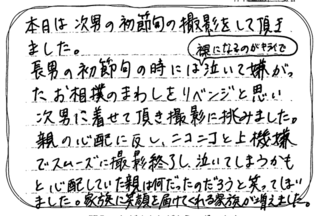 本日は次男の初節句の撮影をして頂き
ました。
裸になるのがイヤで
長男の初節句の時には泣いて嫌がっ
たお相撲のまわしをリベンジと思い
次男に着せて頂き撮影に挑みました。
親の心配に反し、ニコニコと上機嫌
でスムーズに撮影終了し、泣いてしまうかも
と心配していた親は何だったのだろうと笑ってしまい
ました。家族に笑顔を届けてくれる家族が増えました。